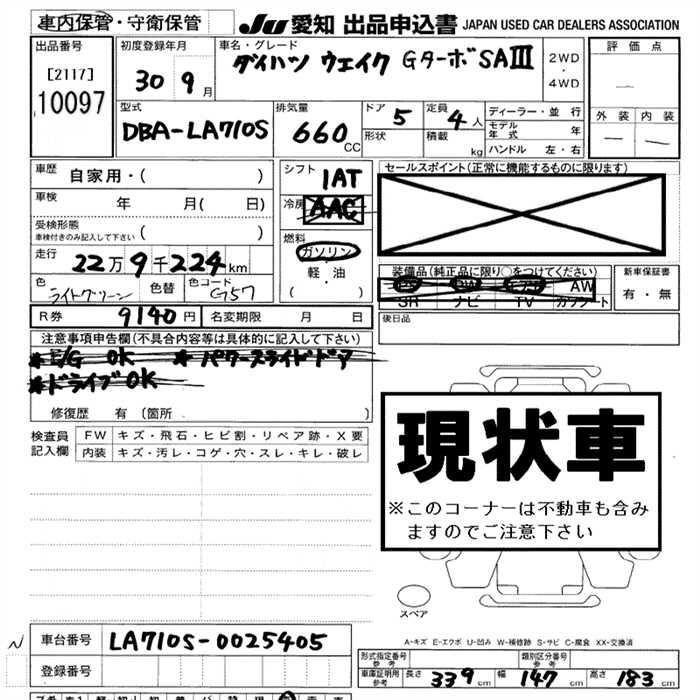 車内保管・守衛保管
JU 愛知 出品申込書 JAPAN USED CAR DEALERS ASSOCIATION
出品番号
[2117]
10097
初度登録年月
30 9月
車名・グレード
ダイハツ ウェイク Gターボ SAⅢ
2WD
・
4WD
評価点
—
外装 内装
— —
型式
DBA-LA710S
排気量
660 CC
ドア 5
形状
定員 4人
積載 kg
ディーラー・並行
モデル年式 年
ハンドル 左・右
車歴 自家用・( )
車検 年 月( 日)
受検形態
車検付きのみ記入して下さい ( )
走行 22万9千224km
色 ライトグリーン 色替 色コード G57
シフト 1AT
冷房 AAC
燃料
ガソリン
・
軽・油
( )
セールスポイント(正常に機能するものに限ります)
装備品(純正品に限り○をつけてください)
PS PW エアB AW
SR ナビ TV カワシート
新車保証書
有・無
R券 9140円 名変期限 月 日
後日品
注意事項申告欄(不具合内容等は具体的に記入して下さい)
*E/G OK *パワースライドドア
*ドライブOK
修復歴 有(箇所 )
検査員記入欄
FW キズ・飛石・ヒビ割・リペア跡・X要
内装 キズ・汚レ・コゲ・穴・スレ・キレ・破レ
現状車
※このコーナーは不動車も含み
ますのでご注意下さい
スペア
A-キズ E-エクボ U-凹み W-補修跡 S-サビ C-腐食 XX-交換済
N
車台番号 LA710S-0025405
登録番号
形式指定番号 参考
類別区分番号 参考
車庫証明用 参考 長さ 339cm 幅 147cm 高さ 183cm